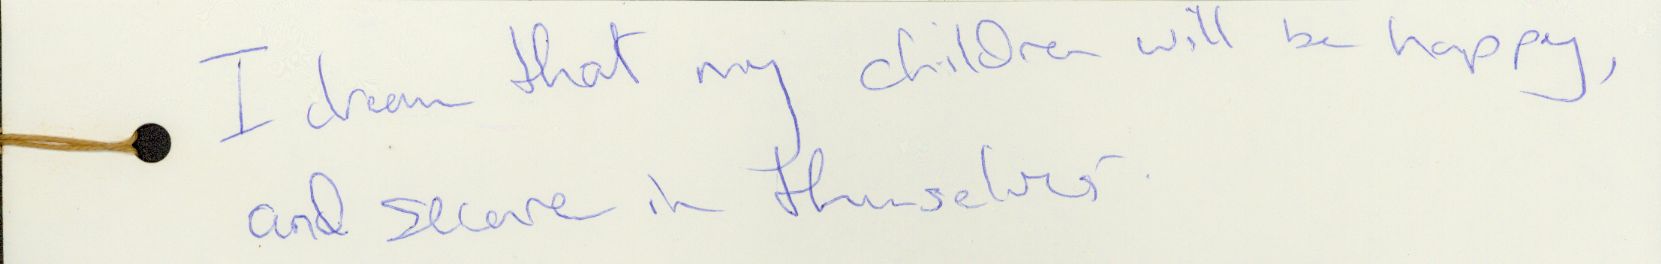 I dream that my children will be happy,
and secure in themselves.